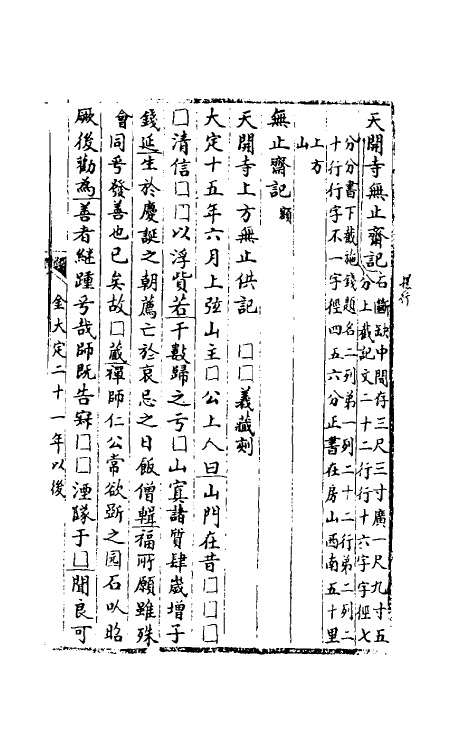 天開寺無止齋記石斷缺中間存三尺三寸廣一尺九寸五
分上截記文二十二行行十六字字徑七
分分書下截施錢題名二列第一列二十二行弟二列二
十行行字不一字徑四五六分正書在房山西南五十里
上方
山
無止齋記額
天開寺上方無止供記 □□義藏刻
大定十五年六月上弦山主□公上人曰山門在昔□□□
□清信□□以浮貲若干數歸之亏□山寘諸質肆嵗增子
錢延生於慶誕之朝薦亡於哀忌之日飯僧輯福所願雖殊
會同号發善也已矣故□藏禪師仁公常欲斵之园石以昭
厥後勸為善者継踵号哉師既告寂□□湮隊于□閒良可
金大定二十一年以後
提行